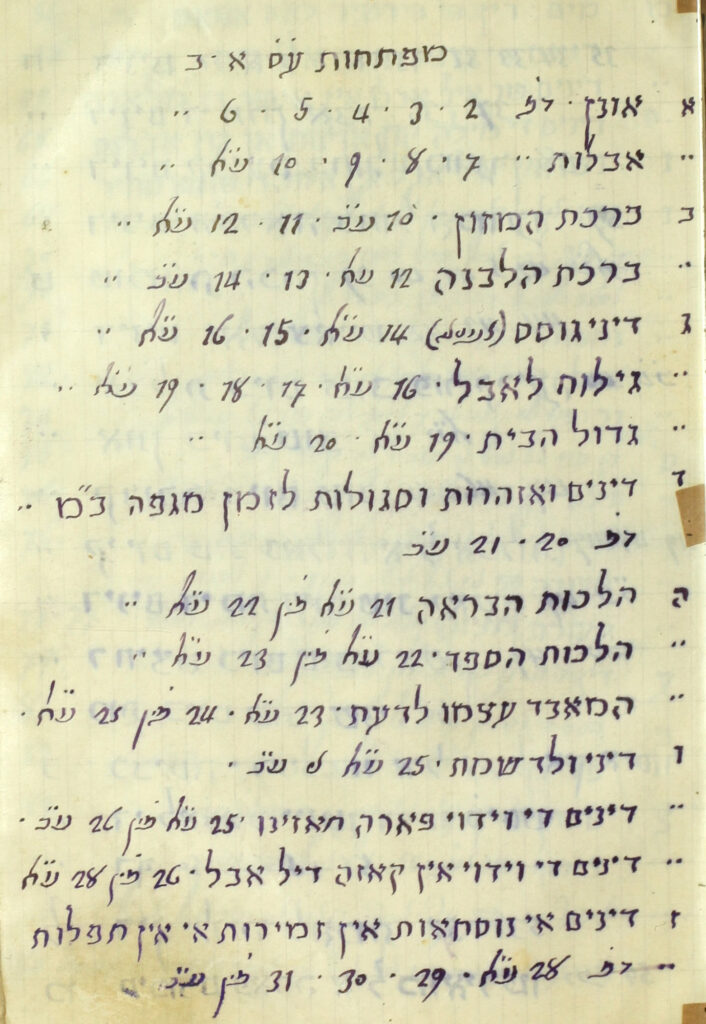 מפתחות ע״ס א · ב
א אונן · דף 2 · 3 · 4 · 5 · 6 ״
״ אבלות ״ 7 · 8 · 9 · 10 ע״א ״
ב ברכת המזון · 10 ע״ב · 11 · 12 ע״א ״
״ ברכת הלבנה 12 ע״א · 13 · 14 ע״ב ״
ג דיני גוסס 14 ע״א · 15 · 16 ע״א ״
״ גילוח לאבל · 16 ע״א · 17 · 18 · 19 ע״א ״
״ גדול הבית · 19 ע״א · 20 ע״א ״
ד דינים ואזהרות וסגולות לזמן מגפה ב״מ ״
דף 20 · 21 ע״ב
ה הלכות הבראה 21 ע״א 22 ע״א ״
״ הלכות הספד · 22 ע״א 23 ע״א ״
״ המאבד עצמו לדעת · 23 ע״א · 24 25 ע״א ·
ו דיני ולד שמת · 25 ע״א ע״ב ·
״ דינים די וידוי פארה חאזינו · 25 ע״א 26 ע״ב ·
״ דינים די וידוי אין קאזה דיל אבל · 26 28 ע״א
ז דינים אי נוסחאות אין זמירות אי אין תפלות
״ דף 28 ע״א · 29 · 30 · 31 ע״ב